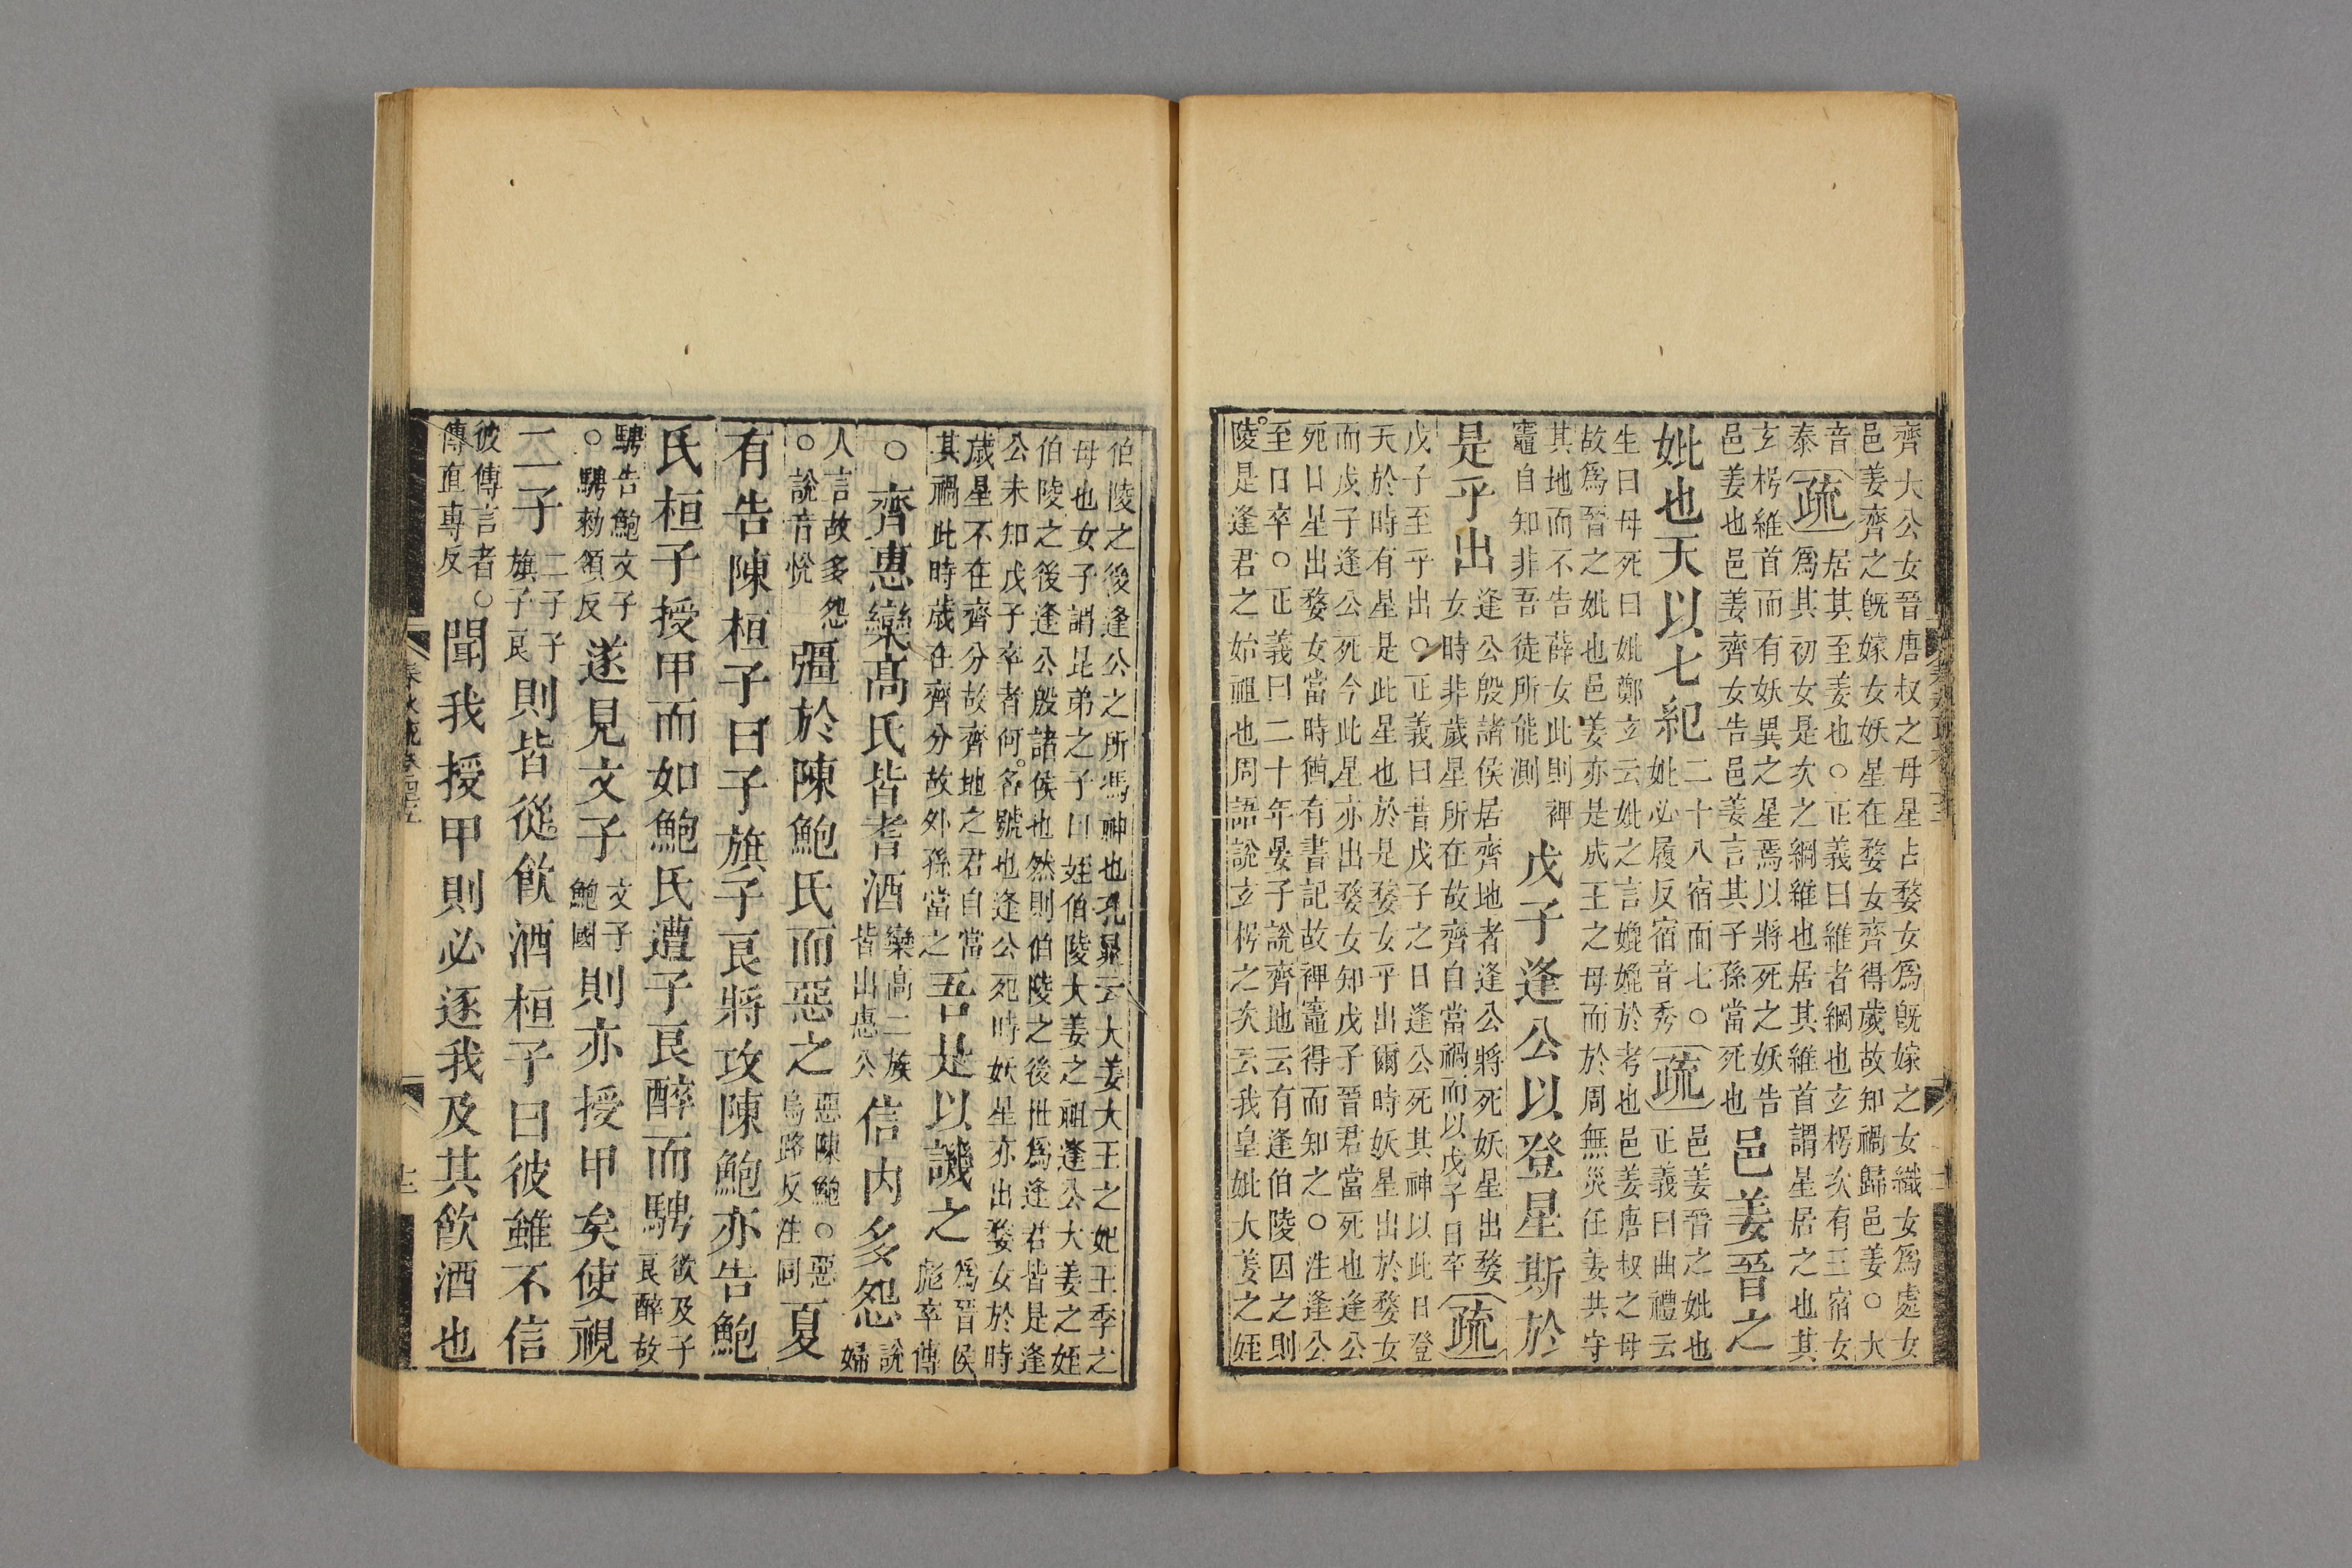 齊大公女晉唐叔之母星占婺女爲旣嫁之女織女爲處女
邑姜齊之旣嫁女妖星在婺女齊得歲故知禍歸邑姜○大
音
泰
疏
居其至姜也○正義曰維者綱也玄枵次有三宿女
爲其初女是次之綱維也居其維首謂星居之也其
玄枵維首而有妖異之星焉以將死之妖告
邑姜也邑姜齊女告邑姜言其子孫當死也
邑姜晉之
妣也天以七紀
二十八宿面七○
妣必履反宿音秀
疏
邑姜晉之妣也
正義曰曲禮云
生曰母死曰妣鄭玄云妣之言媲媲於考也邑姜唐叔之母
故爲晉之妣也邑姜亦是成王之母而於周無災任姜共守
其地而不告薛女此則裨
竈自知非吾徒所能測
戊子逢公以登星斯於
是乎出
逢公殷諸侯居齊地者逢公將死妖星出婺
女時非歲星所在故齊自當禍而以戊子日卒
疏
戊子至乎出○正義曰昔戊子之日逢公死其神以此日登
天於時有星是此星也於是婺女乎出爾時妖星出於婺女
而戊子逢公死今此星亦出婺女知戊子晉君當死也逢公
死日星出婺女當時猶有書記故裨竈得而知之○注逢公
至日卒○正義曰二十年晏子說齊地云有逢伯陵因之則
陵是逢君之始祖也周語說玄枵之次云我皇妣大姜之姪
伯陵之後逢公之所馮神也孔晁云大姜大王之妃王季之
母也女子謂昆弟之子曰姪伯陵大姜之祖逢公大姜之姪
伯陵之後逢公殷諸侯也然則伯陵之後世爲逢君皆是逢
公未知戊子卒者何名號也逢公死時妖星亦出婺女於時
歲星不在齊分故齊地之君自當
其禍此時歲在齊分故外孫當之
吾是以譏之
爲晉侯
彪卒傳
○齊惠欒高氏皆耆酒
欒高二族
皆出惠公
信內多怨
說
婦
人言故多怨
○說音悅
彊於陳鮑氏而惡之
惡陳鮑○惡
烏路反注同
夏
有告陳桓子曰子旗子良將攻陳鮑亦告鮑
氏桓子授甲而如鮑氏遭子良醉而騁
欲及子
良醉故
騁告鮑文子
○騁勑領反
遂見文子
文子
鮑國
則亦授甲矣使視
二子
二子子
旗子良
則皆從飲酒桓子曰彼雖不信
彼傳言者○
傳直專反
聞我授甲則必逐我及其飲酒也